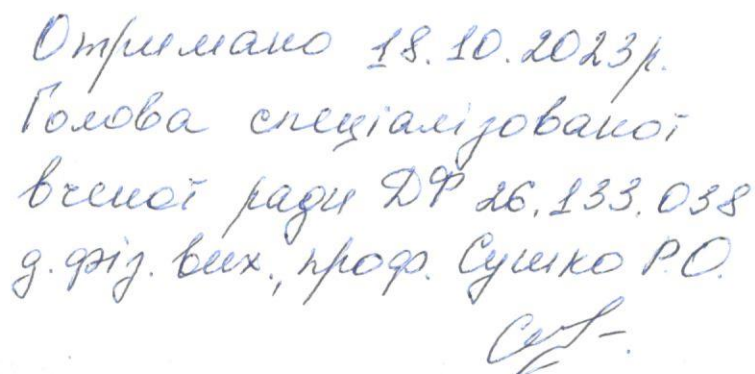 Отримано 18.10.2023р.
Голова спеціалізованої
вченої ради ДФ 26.133.038
д.фіз.вих., проф. Сушко Р.О.